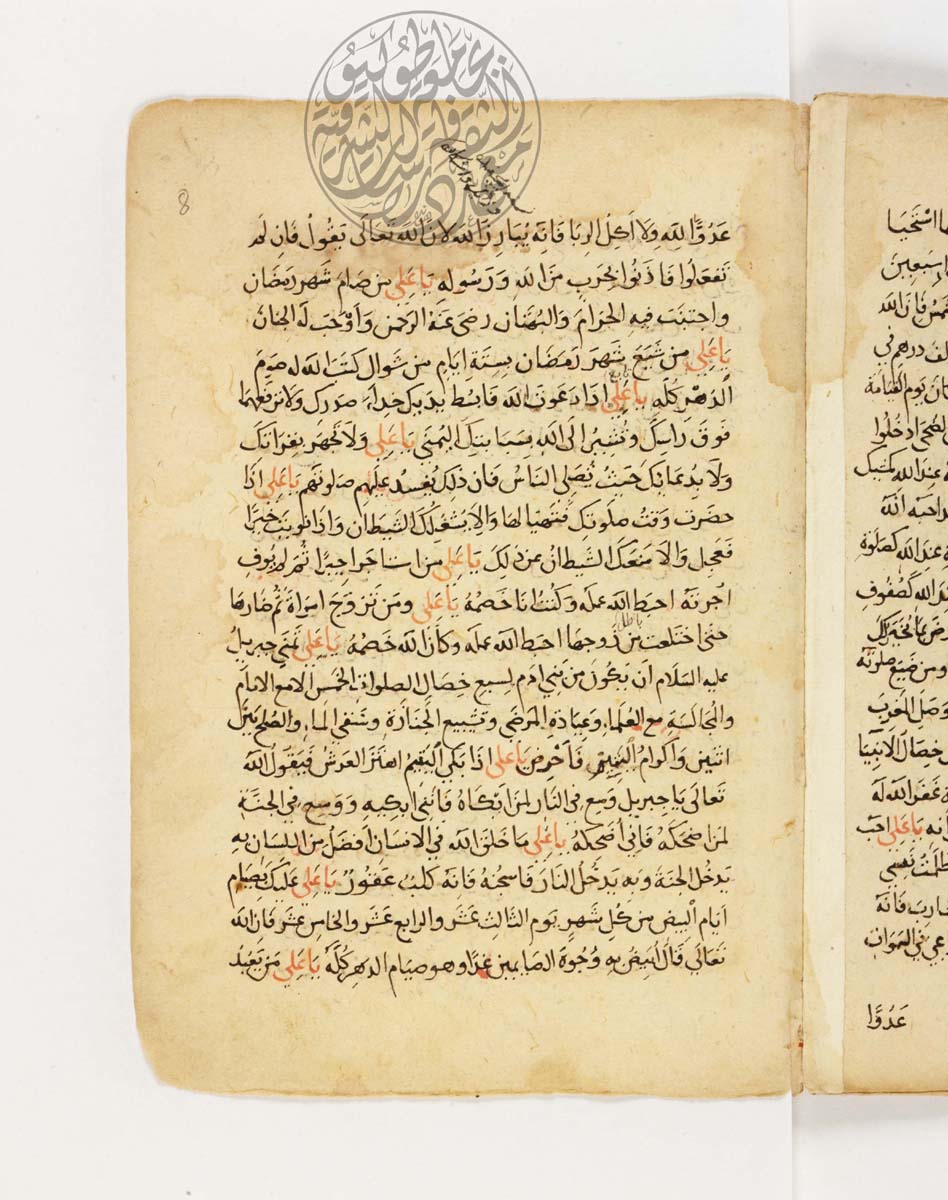 عَدُوُّ الله ولا اكل الربا فانه يبارز الله لانّ الله تعالى يقول فان لم
تفعلوا فاذنوا بحرب من الله ورسوله يا علي من صام شهر رمضان
واجتنب فيه الحرام والبهتان رضى عنه الرحمن واوجب له الجنان
يا علي من شيع شهر رمضان بستة ايام من شوال كتب الله له صوم
الدهر كله يا علي اذا دعوت الله فابسط يديك حذاء صدرك ولا ترفعهما
فوق راسك وتشير الى الله بسبابتك اليمنى يا علي ولا تجهر بقراتك
ولا بدعائك حيث تصلي الناس فان ذلك يفسد عليهم صلوتهم يا علي اذا
حضرت وقت صلوتك فتهيا لها والا يشغلك الشيطان واذا نويت خيرا
فعجل والا منعك الشيطان عن ذلك يا علي من استاجر اجيرا ثم لم يوف
اجرته احبط الله عمله وكنت انا خصمه يا علي ومن تزوج امراة ثم ضارها
حتى اختلعت من زوجها احبط الله عمله وكان الله خصمه يا علي تمنى جبريل
عليه السلام ان يكون من بني ادم لسبع خصال الصلوات الخمس الا مع الامام
والمجالسة مع العلماء وعيادة المرضى وتشييع الجنازة وسقي الماء والصلح بين
اثنين واكرام اليتيم فاحرص يا علي اذا بكى اليتيم اهتز العرش فيقول الله
تعالى يا جبريل وسع في النار لمن ابكاه فانني ابكيه ووسع في الجنة
لمن اضحكه فاني اضحكه يا علي ما خلق الله في الانسان افضل من اللسان به
يدخل الجنة وبه يدخل النار فاسجنه فانه كلب عقور يا علي عليك بصيام
ايام البيض من كل شهر يوم الثالث عشر والرابع عشر والخامس عشر فان الله
تعالى قال ابيض به وجوه الصايمين غدا وهو صيام الدهر كله يا علي من بعيد
8
ا استحيا
اربعين
فان الله
الف درهم في
كان يوم القيامة
الضحى ادخلوا
عند الله
صاحبه انه
عند الله كصلوة
الله كصفوف
ومن ضيع صلوته
وصل المغرب
خصال الانبيا
غفر الله له
يا علي احب
ظلمت نفسي
فانه
في السموات
عدوّا